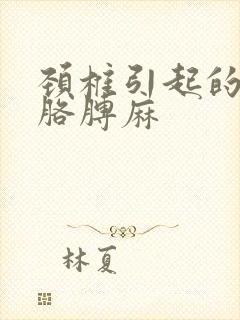 颈椎引起的
胳膊麻
林夏